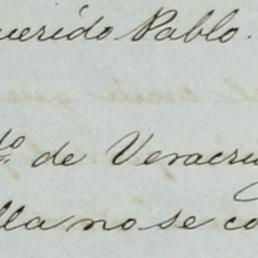 uerido Pablo.
do. de Veracru
lla no se co